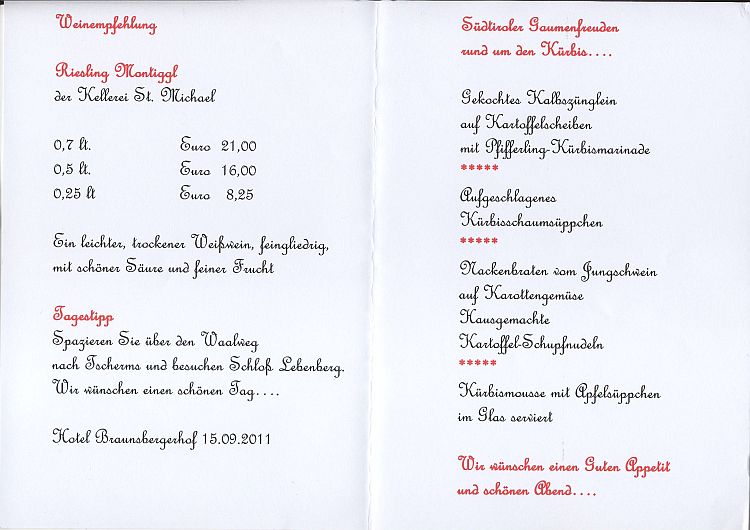 Weinempfehlung
Riesling Montiggl
der Kellerei St. Michael
0,7 lt. Euro 21,00
0,5 lt. Euro 16,00
0,25 lt Euro 8,25
Ein leichter, trockener Weißwein, feingliedrig,
mit schöner Säure und feiner Frucht
Tagestipp
Spazieren Sie über den Waalweg
nach Tscherms und besuchen Schloß Lebenberg.
Wir wünschen einen schönen Tag....
Hotel Braunsbergerhof 15.09.2011
Südtiroler Gaumenfreuden
rund um den Kürbis....
Gekochtes Kalbszünglein
auf Kartoffelscheiben
mit Pfifferling-Kürbismarinade
*****
Aufgeschlagenes
Kürbisschaumsüppchen
*****
Nackenbraten vom Jungschwein
auf Karottengemüse
Hausgemachte
Kartoffel-Schupfnudeln
*****
Kürbismousse mit Apfelsüppchen
im Glas serviert
Wir wünschen einen Guten Appetit
und schönen Abend....